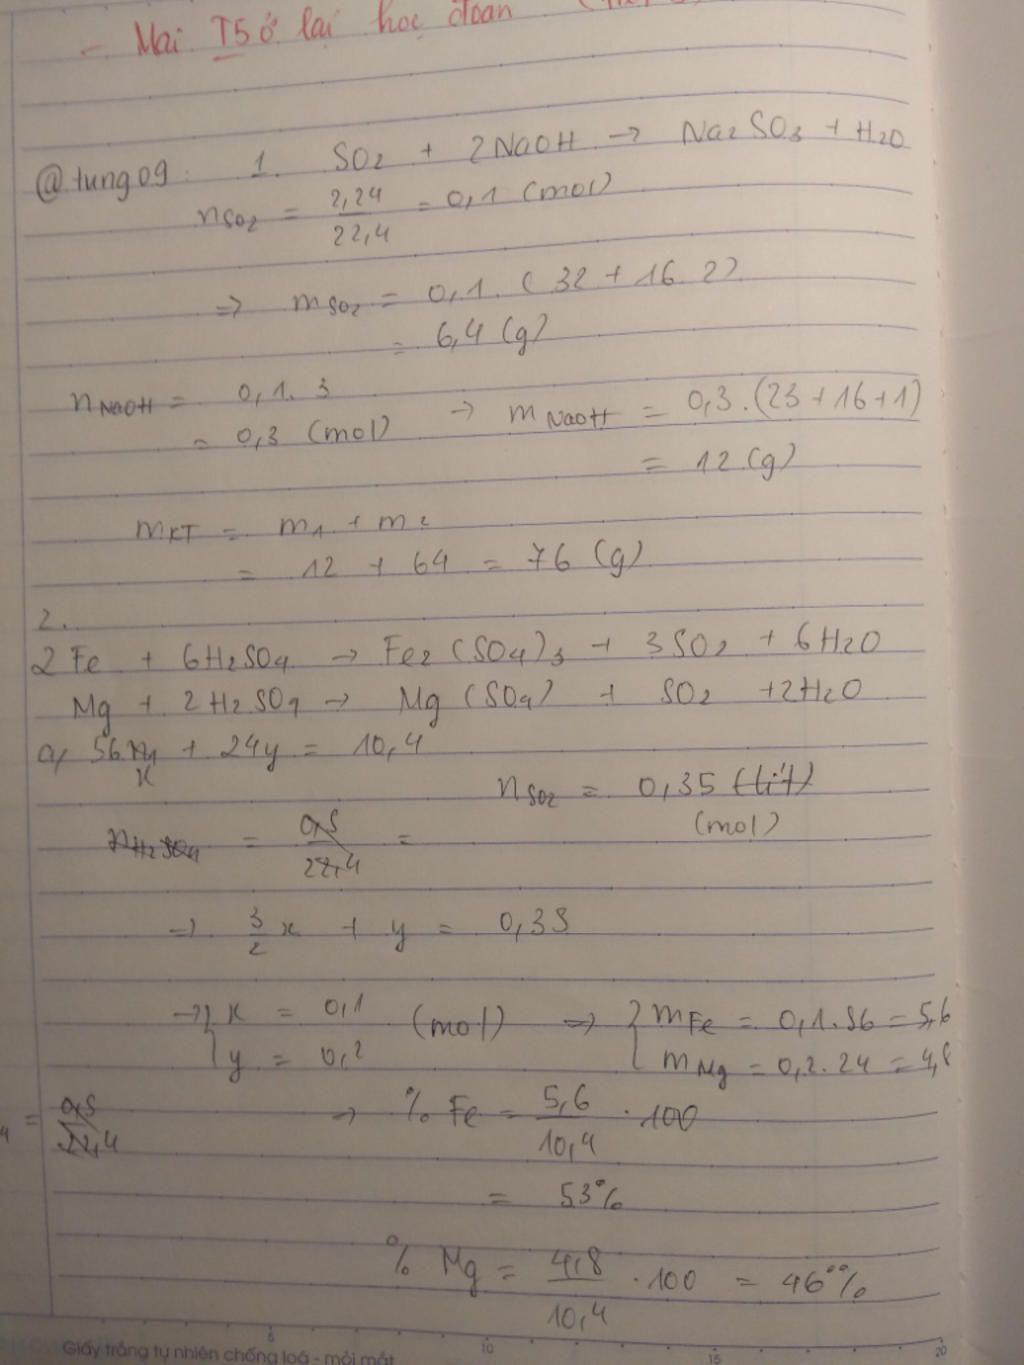 - Mai T5 ở lại học đoàn
@tung09: 1. SO2 + 2NaOH → Na2SO3 + H2O
nSO2 = 2,24/22,4 = 0,1 (mol)
⇒ mSO2 = 0,1. (32 + 16.2)
= 6,4 (g)
nNaOH = 0,1. 3
= 0,3 (mol) → mNaOH = 0,3.(23+16+1)
= 12 (g)
mKT = m1 + m2
= 12 + 64 = 76 (g)
2.
2Fe + 6H2SO4 → Fe2(SO4)3 + 3SO2 + 6H2O
Mg + 2H2SO4 → Mg(SO4) + SO2 + 2H2O
a, 56x + 24y = 10,4
nSO2 = 0,35 (lít)
(mol)
nH2SO4 = 0,5/22,4 =
→ 3/2 x + y = 0,35
→ { x = 0,1 (mol) ⇒ { mFe = 0,1.56 = 5,6
y = 0,2 mMg = 0,2.24 = 4,8
4 = 0,5/22,4 → % Fe = 5,6/10,4 . 100
= 53%
% Mg = 4,8/10,4 . 100 = 46%
Giấy trắng tự nhiên chống loá - mỏi mắt
5 10 15 20